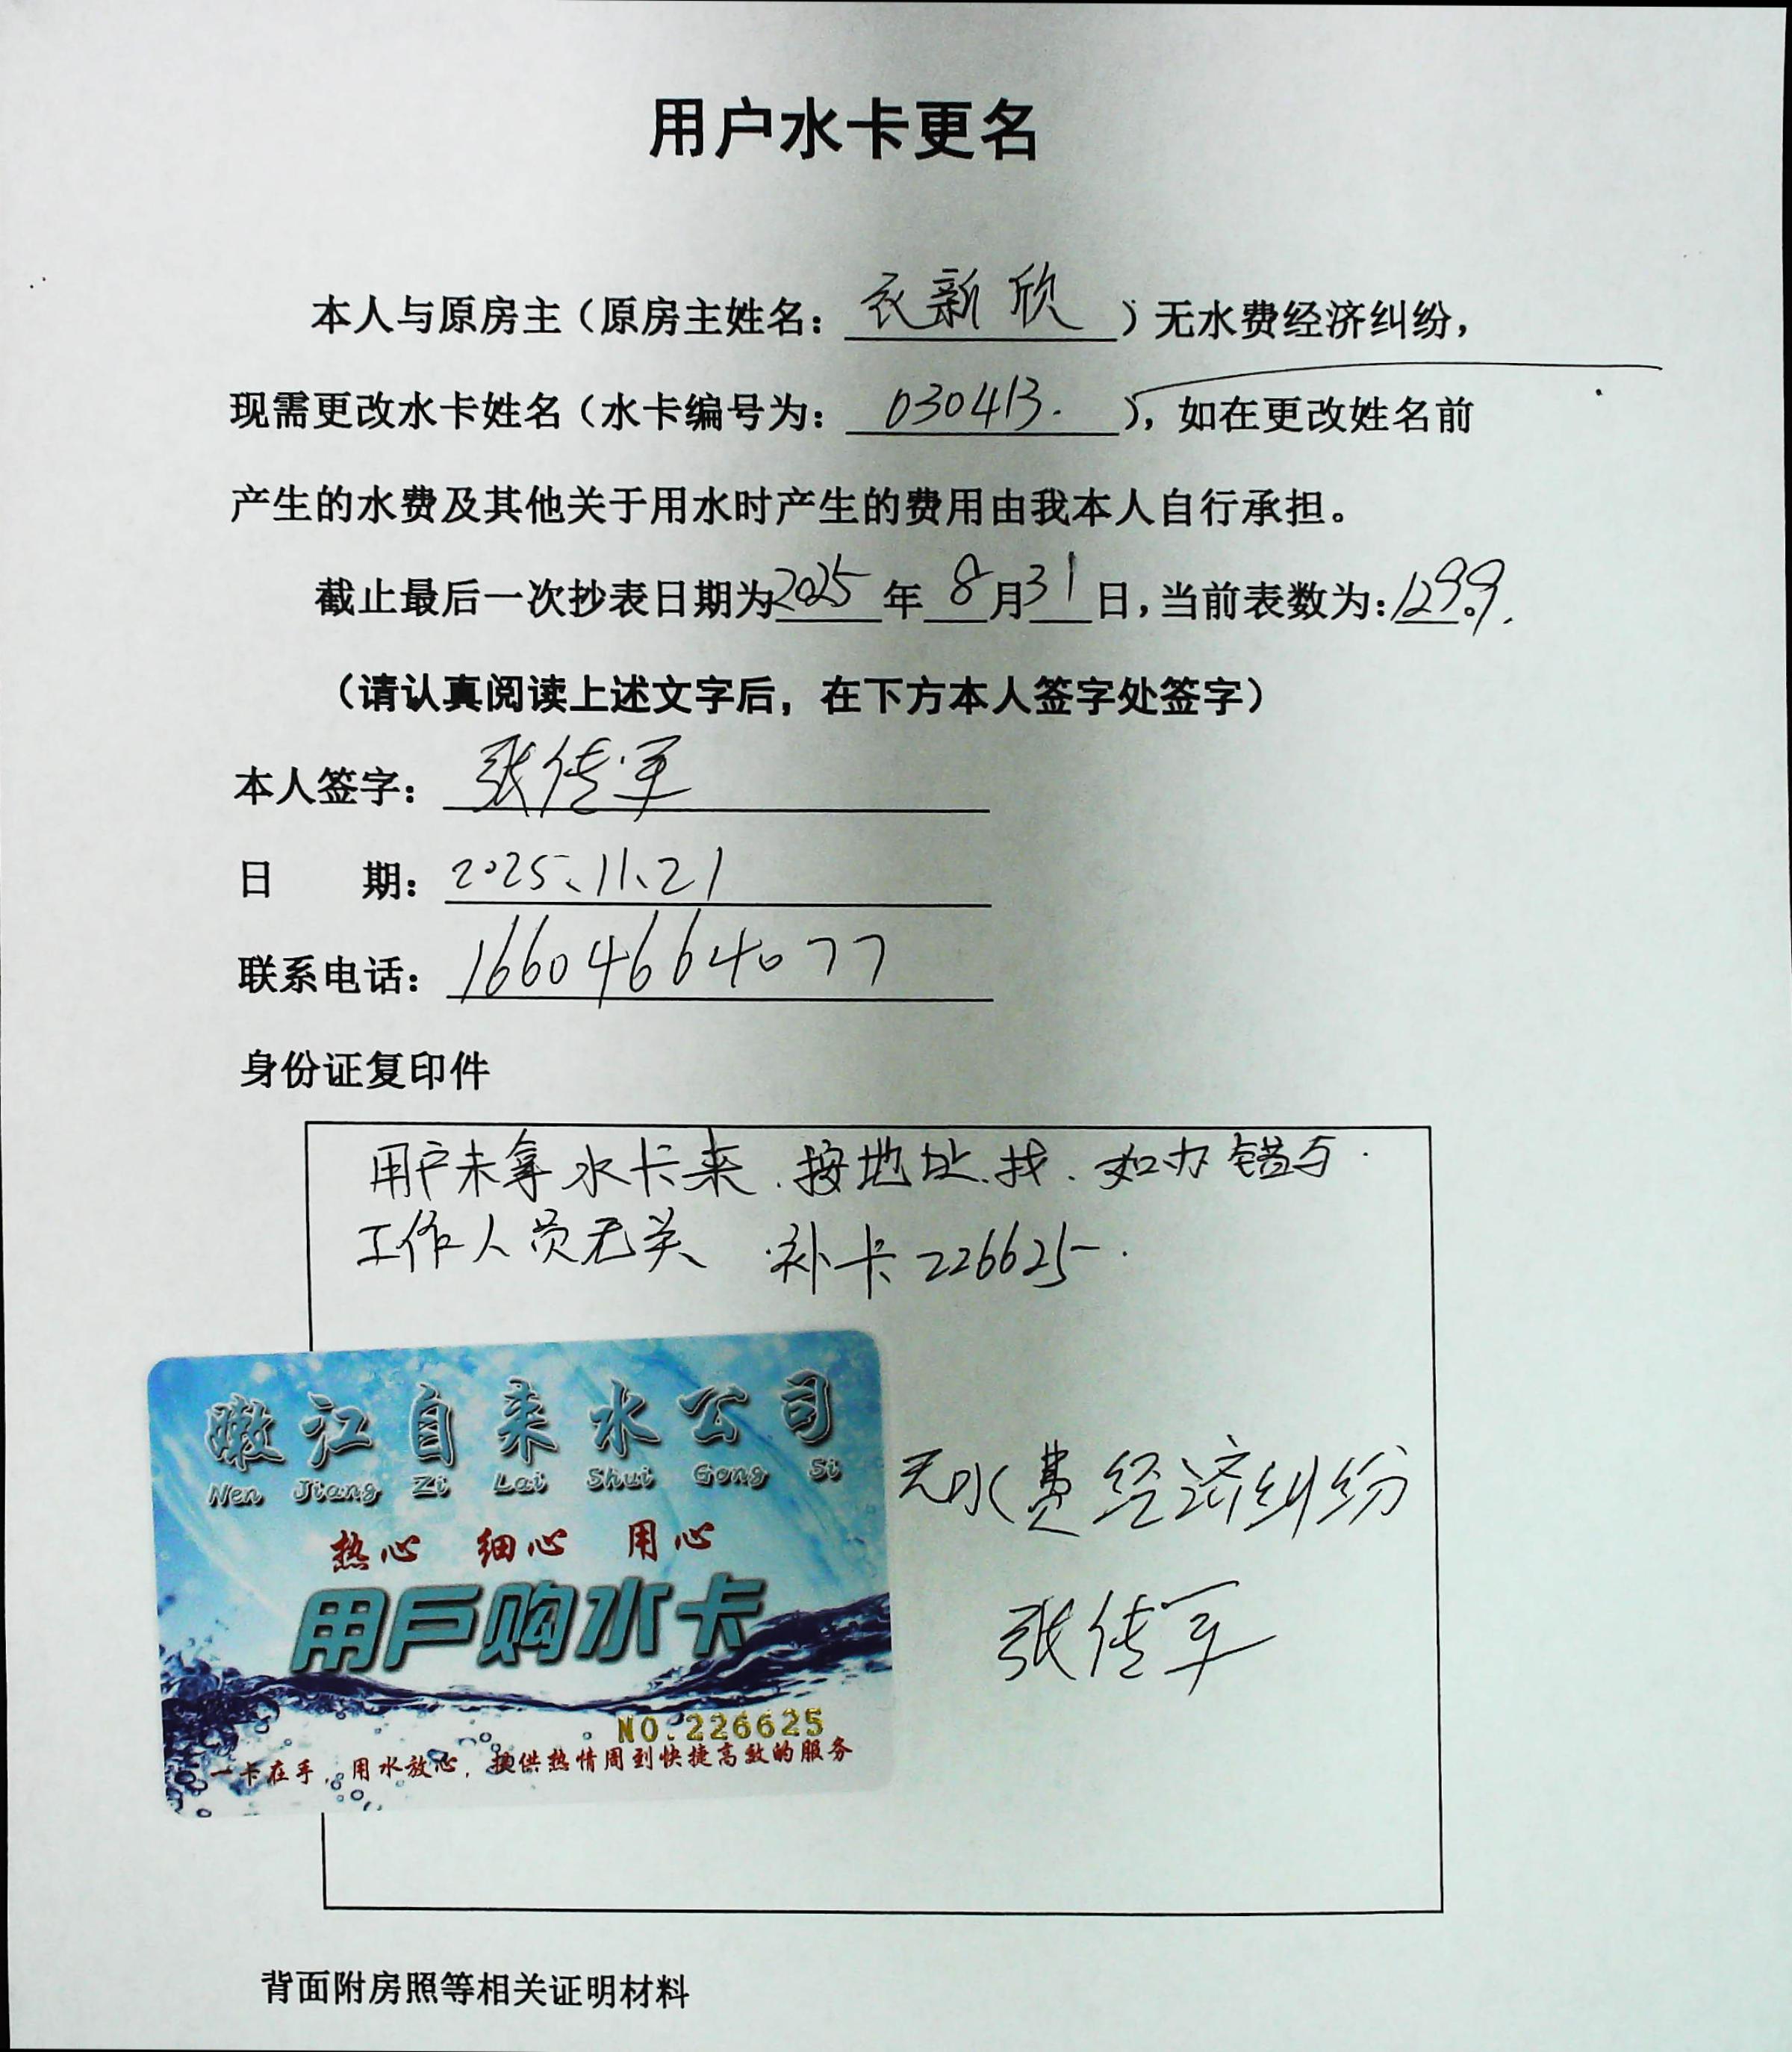 用户水卡更名
本人与原房主（原房主姓名：衣新欣）无水费经济纠纷，
现需更改水卡姓名（水卡编号为：030413.），如在更改姓名前
产生的水费及其他关于用水时产生的费用由我本人自行承担。
截止最后一次抄表日期为2025年8月31日，当前表数为：1299.
（请认真阅读上述文字后，在下方本人签字处签字）
本人签字：张传军
日 期：2025、11、21
联系电话：16604664077
身份证复印件
用户未拿水卡来.按地址.找.如办错与.
工作人员无关 补卡226625.
嫩江自来水公司
Nen Jiang Zi Lai Shui Gong Si
热心 细心 用心
用户购水卡
NO.226625
一卡在手，用水放心，提供热情周到快捷高效的服务
无水费经济纠纷
张传军
背面附房照等相关证明材料